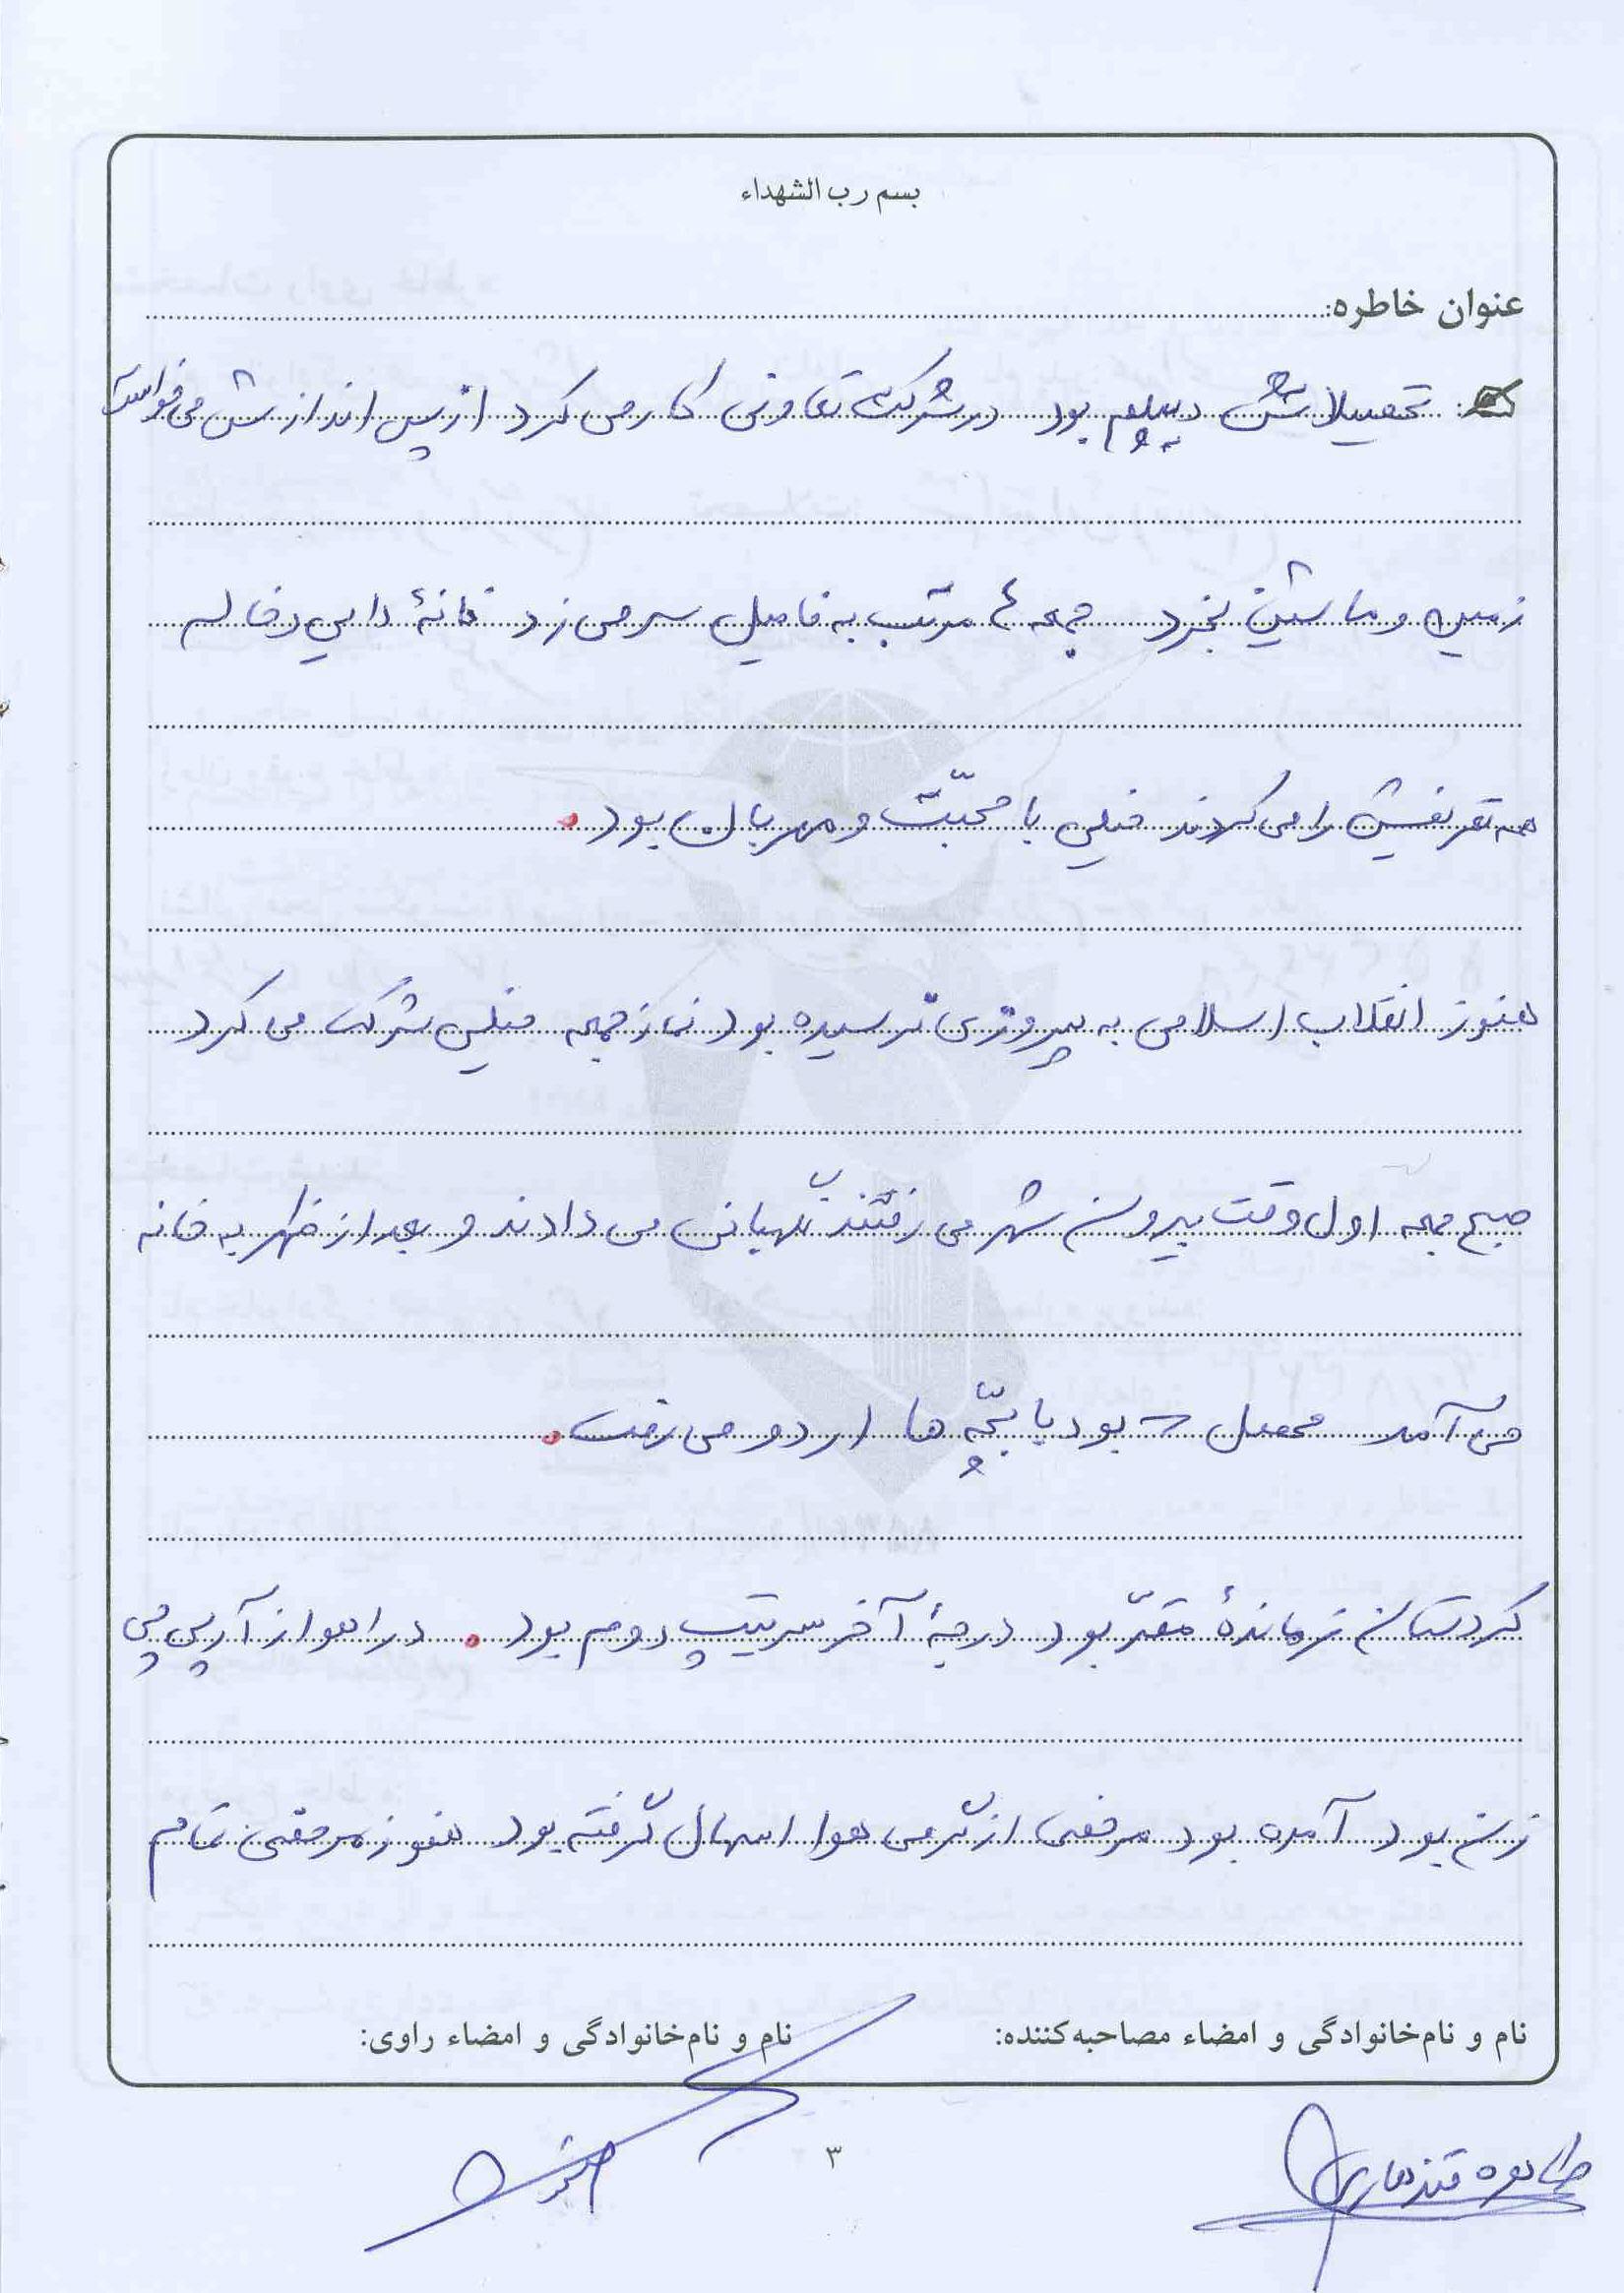 بسم رب الشهداء
عنوان خاطره:
تحصیلاتش دیپلم بود در شرکت تعاونی کار می کرد از پس اندازش می خواست
زمین و ماشین بخرد جمعه ء مرتب به فامیل سر می زد خانهٔ دایی و خاله
همه تعریفش را می کردند خیلی با محبّت و مهربان بود.
هنوز انقلاب اسلامی به پیروزی نرسیده بود نماز جمعه خیلی شرکت می کرد
صبح جمعه اول وقت بیرون شهر می رفتند نگهبانی می دادند و بعد از ظهر به خانه
می آمد محصل بود با بچّه ها اردو می رفت.
کردستان فرماندهٔ مقر بود درجهٔ آخر سرتیپ دوم بود. در اهواز آرپی چی
زن بود آمده بود مرخصی از گرمی هوا اسهال گرفته بود هنوز مرخصی تمام
نام و نام‌خانوادگی و امضاء مصاحبه‌کننده:
نام و نام‌خانوادگی و امضاء راوی:
طاهره قندهاری
۳